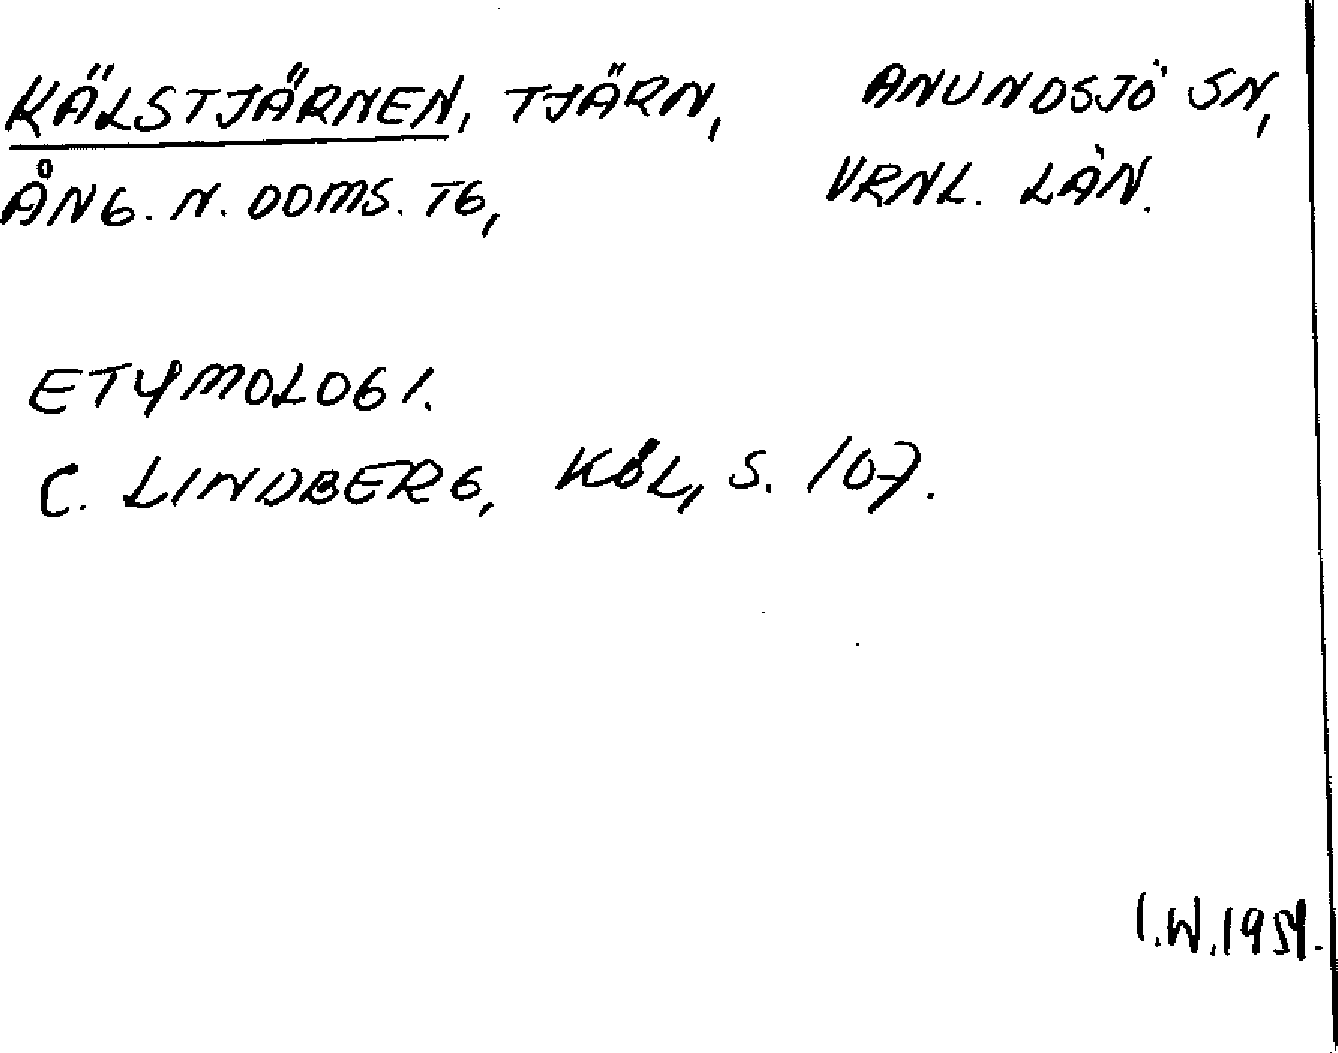 KÄLSTJÄRNEN, TJÄRN, ANUNDSJÖ SN,
ÅNG. N. DOMS. TG, VRNL. LÄN.
ETYMOLOGI.
C. LINDBERG, KÖL, S. 107.
I.W. 1951.